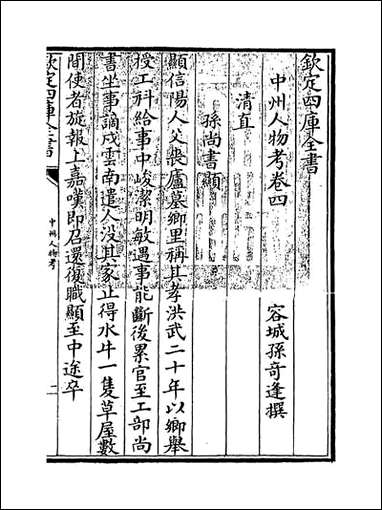 欽定四庫全書
中州人物考卷四
容城孫奇逢撰
清直
孫尚書顯
顯信陽人父喪廬墓鄉里稱其孝洪武二十年以鄉舉
授工科給事中峻潔明敏遇事能斷後累官至工部尚
書坐事謫戍雲南遣人没其家止得水牛一隻草屋數
間使者旋報上嘉嘆即召還復職顯至中途卒
欽定四庫全書
中州人物考